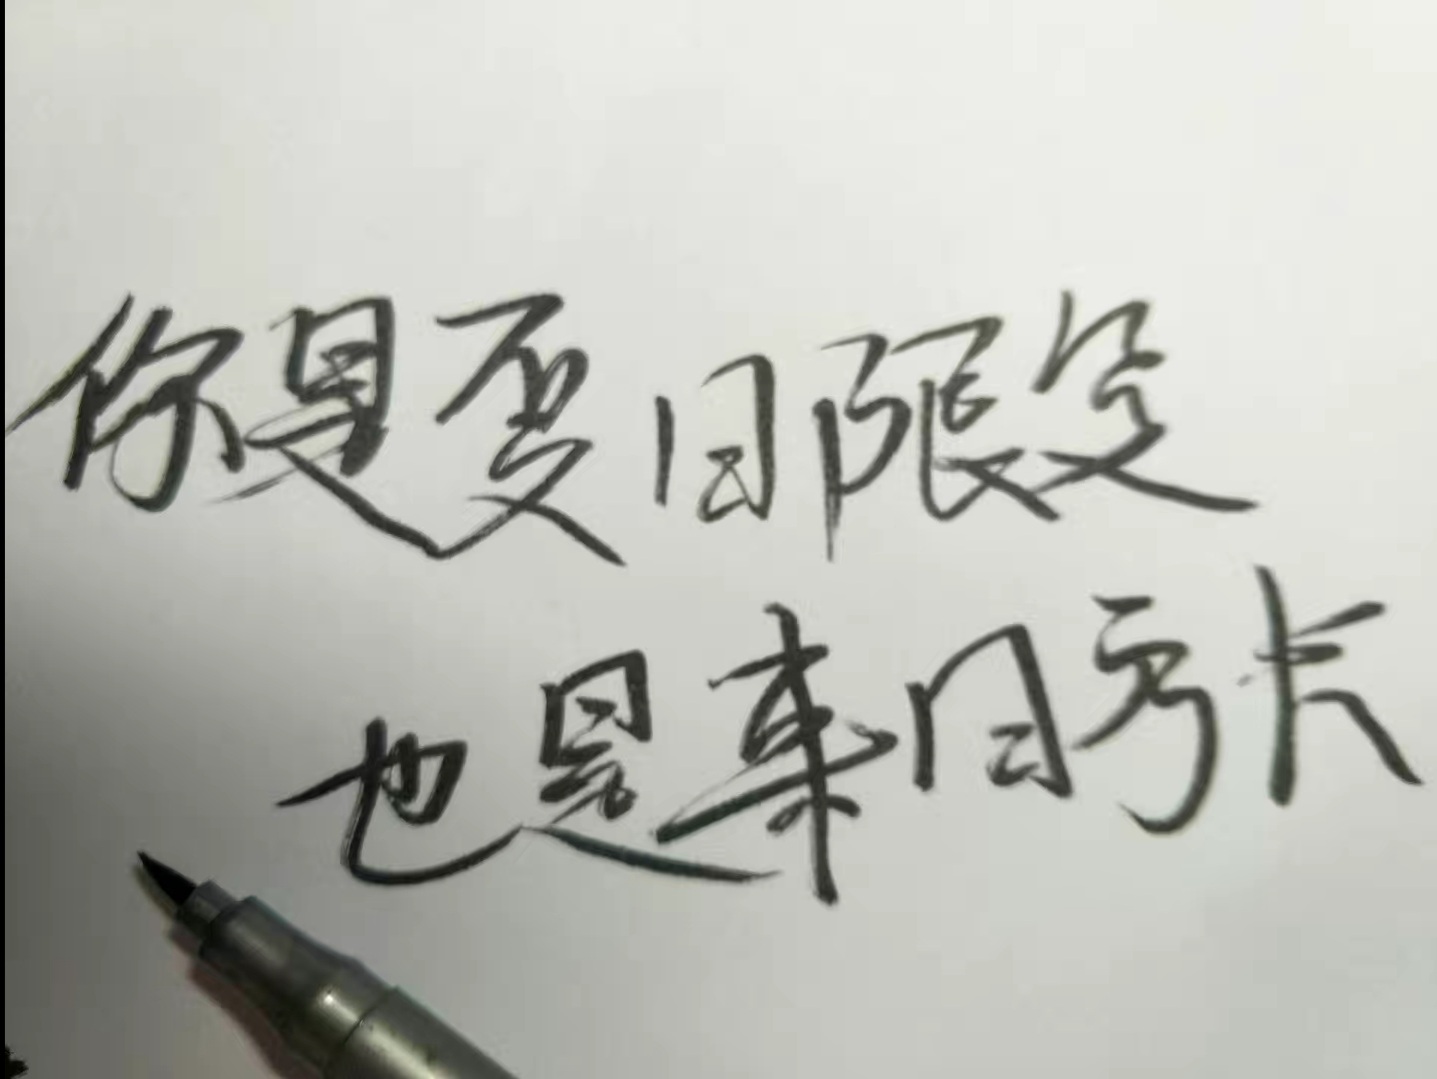 你是夏日限定
也是来日方长